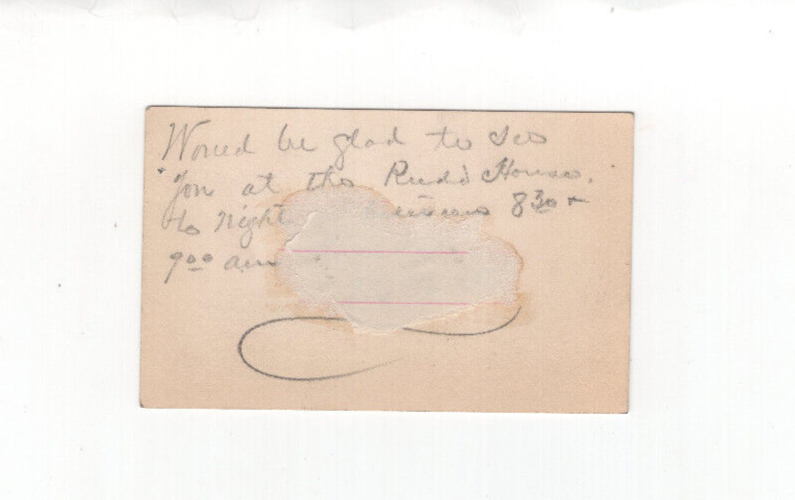 Would be glad to see
you at the Rudd House.
to night 8 30 or
9 00